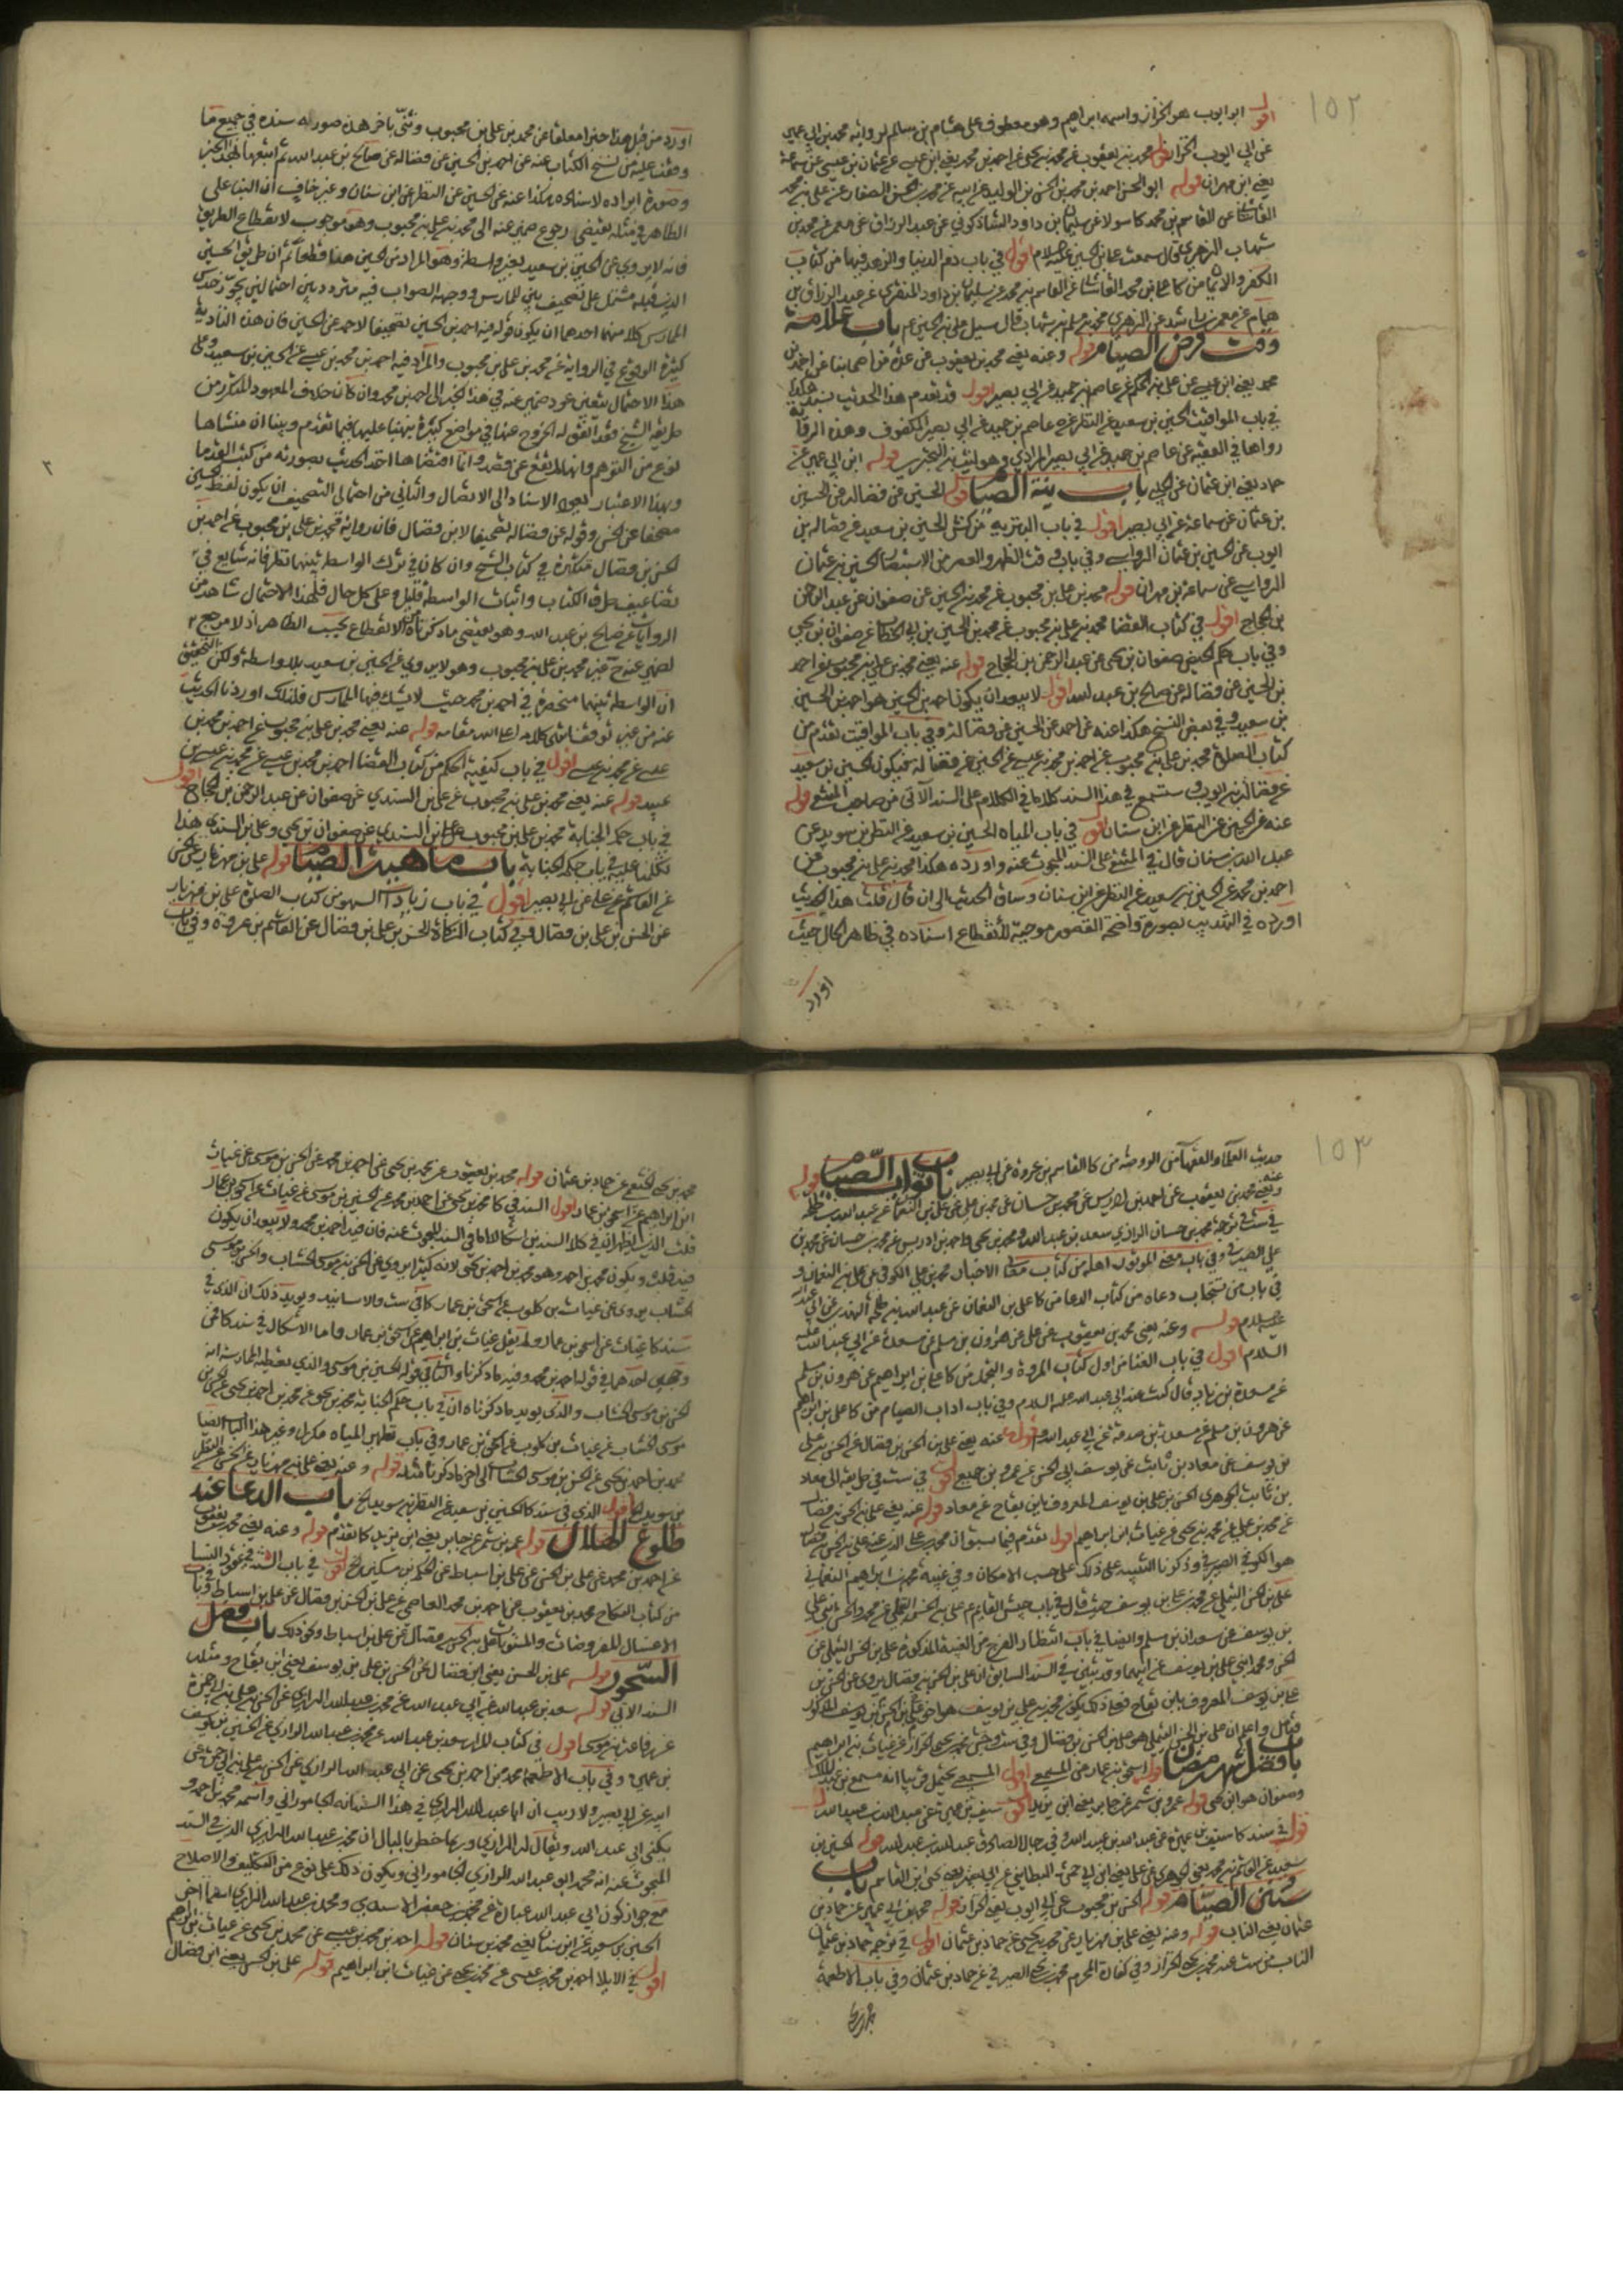 ١٥٢
اقول ابو ايوب هو الخزاز واسمه ابراهيم وهو معطوف على هشام بن سالم لرواية محمد بن ابي عمير
عن ابي ايوب الخزاز قوله محمد بن يعقوب عن محمد بن يحيى عن احمد بن محمد يعني ابن عيسى عن عثمان بن عيسى عن سماعة
يعني ابن مهران قوله ابو الحسن احمد بن محمد بن الحسن بن الوليد عن ابيه عن محمد بن الحسن الصفار عن علي بن محمد
القاشاني عن القاسم بن محمد كاسولا عن سليمان بن داود الشاذكوني عن عبد الرزاق عن معمر عن محمد بن
شهاب الزهري قال سمعت علي بن الحسين عليه السلام اقول في باب ذم الدنيا والزهد فيها من كتاب
الكفر والايمان من كا علي بن محمد القاشاني عن القاسم بن محمد عن سليمان بن داود المنقري عن عبد الرزاق بن
همام عن معمر بن راشد عن الزهري محمد بن مسلم بن شهاب قال سئل علي بن الحسين عم باب علامة
وقت فرض الصيام قوله وعنه يعني محمد بن يعقوب عن عدة من اصحابنا عن احمد بن
محمد يعني ابن عيسى عن علي بن الحكم عن عاصم بن حميد عن ابي بصير اقول قد تقدم هذا الحديث بسند هكذا
في باب المواقيت الحسين بن سعيد عن النضر عن عاصم بن حميد عن ابي بصير المكفوف وهذه الرواية
رواها في الفقيه عن عاصم بن حميد عن ابي بصير المرادي وهو ليث بن البختري قوله ابن ابي عمير عن
حماد يعني ابن عثمان عن الحلبي باب نية الصيام قوله الحسين عن فضالة عن الحسين
بن عثمان عن سماعة عن ابي بصير اقول في باب البئر يه من كش الحسين بن سعيد عن فضالة بن
ايوب عن الحسين بن عثمان الرواسي وفي باب وقت الظهر والعصر من الاستبصار الحسين بن عثمان
الرواسي عن سماعة بن مهران قوله محمد بن علي بن محبوب عن محمد بن الحسين عن صفوان عن عبد الرحمن
بن الحجاج اقول في كتاب القضا محمد بن علي بن محبوب عن محمد بن الحسين بن ابي الخطاب عن صفوان بن يحيى
وفي باب حكم الحيض صفوان بن يحيى عن عبد الرحمن بن الحجاج قوله عنه يعني محمد بن علي بن محبوب عن احمد
بن الحسين عن فضالة عن صالح بن عبد الله اقول لا يبعد ان يكون احمد بن الحسين هو احمد بن الحسين
بن سعيد وفي بعض النسخ هكذا عنه عن احمد عن الحسين عن فضالة وفي باب المواقيت تقدم من
كتاب الصلوة محمد بن علي بن محبوب عن احمد بن محمد بن عيسى عن الحسين عن فضالة فيكون الحسين بن سعيد
عن فضالة بن ايوب وستسمع في هذا السند كلاما في الكلام على السند الآتي من صاحب المنتقى قوله
عنه عن الحسين عن النضر عن ابن سنان اقول في باب المياه الحسين بن سعيد عن النضر بن سويد عن
عبد الله بن سنان قال في المنتقى على السند المبحوث عنه واورده هكذا محمد بن علي بن محبوب عن
احمد بن محمد عن الحسين بن سعيد عن النضر عن ابن سنان وساق الحديث الى ان قال قلت هذا الحديث
اورده في التهذيب بصورة واضحة القصور موجبة لانقطاع اسناده في ظاهر الحال حيث
اورد
اورد من قبل هذا خبرا معلقا عن محمد بن علي بن محبوب وثنى باخر هذه صورته سنده في جميع ما
وقفت عليه من نسخ الكتاب عنه عن احمد بن الحسين عن فضالة عن صالح بن عبد الله ثم اتبعهما بهذا الخبر
وصورة ايراده لاسناده هكذا عنه عن الحسين عن النضر عن ابن سنان وغير خاف ان البنا على
الظاهر في مثله يقتضي رجوع ضمير عنه الى محمد بن علي بن محبوب وهو موجب لانقطاع الطريق
فانه لا يروي عن الحسين بن سعيد بغير واسطة وهو المراد من الحسين هنا قطعا ثم ان طريق الحسين
الذي قبله مشتمل على تصحيف بين للممارس ووجهه الصواب فيه متردد بين احتمالين
المارس كلا منهما احدهما ان يكون قوله فيه احمد بن الحسين تصحيفا لاحمد عن الحسين فان هذه التأدية
كثيرة الوقوع في الرواية عن محمد بن علي بن محبوب والمراد فيه احمد بن محمد بن عيسى عن الحسين بن سعيد وعلى
هذا الاحتمال يتعين عود ضمير عنه في هذا الخبر الى احمد بن محمد وان كان خلاف المعهود المتكرر من
طريقة الشيخ فقد اتفق له الخروج عنها في مواضع كثيرة نبهنا عليها فيما تقدم وبينا ان منشاها
نوع من التوهم وانها لم يقع عن قصد وانما اقتضاها اخذ الحديث بصورته من كتب القدما
وبهذا الاعتبار يعود الاسناد الى الاتصال والثاني من احتمالي التصحيف ان يكون لفظ الحسين
مصحفا عن الحسن وقوله عن فضالة تصحيفا لابن فضال فان رواية محمد بن علي بن محبوب عن احمد بن
الحسن بن فضال متكثرة في كتاب الشيخ وان كان في ترك الواسطة بينهما نظر فانه شايع في
تضاعيف طرق الكتاب واثبات الواسطة قليل وعلى كل حال فلهذا الاحتمال شاهد من
الروايات عن صالح بن عبد الله وهو يقتضي ما ذكرناه من الانقطاع بحسب الظاهر اذ لا مرجع ح
لضمير عنه ح غير محمد بن علي بن محبوب وهو لا يروي عن الحسين بن سعيد بلا واسطة ولكن التحقيق
ان الواسطة بينهما منحصرة في احمد بن محمد حيث لا يشك فيها الممارس فلذلك اوردنا الحديث
عنه من غير توقف انتهى كلامه اعلى الله مقامه قوله عنه يعني محمد بن علي بن محبوب عن احمد بن محمد بن
عيسى عن محمد بن عيسى اقول في باب كيفية الحكم من كتاب القضا احمد بن محمد بن عيسى عن محمد بن عيسى بن
عبيد قوله عنه يعني محمد بن علي بن محبوب عن علي بن السندي عن صفوان عن عبد الرحمن بن الحجاج اقول
في باب حكم الجنابة محمد بن علي بن محبوب عن علي بن السندي عن صفوان بن يحيى وعلي بن السندي هذا
تكلمنا عليه في باب حكم الجنابة باب ماهية الصيام قوله علي بن مهزيار عن الحسن
عن القاسم عن علي عن ابي بصير اقول في باب زيادات السهو من كتاب الصلوة علي بن مهزيار
عن الحسن بن علي بن فضال وفي كتاب الزكاة الحسن بن علي بن فضال عن القاسم بن عروة وفي باب
١٥٣
حديث العلما والفقها من الروضة من كا القاسم بن عروة عن ابي بصير باب ثواب الصيام قوله
وعنه يعني محمد بن يعقوب عن احمد بن ادريس عن محمد بن حسان عن محمد بن علي عن علي بن النعمان عن عبد الله بن طلحة
في ست في ترجمة محمد بن حسان الرازي سعد بن عبد الله ومحمد بن يحيى واحمد بن ادريس عن محمد بن حسان عن محمد بن
علي الصيرفي وفي باب معنى الموتور اهله من كتاب معاني الاخبار محمد بن علي الكوفي عن علي بن النعمان و
في باب من تستجاب دعاه من كتاب الدعا من كا علي بن النعمان عن عبد الله بن طلحة النهدي عن ابي عبد الله
عليه السلام قوله وعنه يعني محمد بن يعقوب عن علي عن هارون بن مسلم عن مسعدة عن ابي عبد الله عليه
السلام اقول في باب الغنا من اول كتاب المروة والتجمل من كا علي بن ابراهيم عن هرون بن مسلم
عن مسعدة بن زياد قال كنت عند ابي عبد الله عليه السلام وفي باب اداب الصيام من كا علي بن ابراهيم
عن هرون بن مسلم عن مسعدة بن صدقة عن ابي عبد الله قوله عنه يعني علي بن الحسن بن فضال عن الحسن بن علي
بن يوسف عن معاذ بن ثابت عن يوسف ابي الحسن عن عمرو بن جميع اقول في ست في طريقه الى معاذ
بن ثابت الجوهري الحسن بن علي بن يوسف المعروف بابن بقاح عن معاذ قوله عنه يعني علي بن الحسن بن فضال
عن محمد بن علي عن محمد بن يحيى عن غياث بن ابراهيم اقول تقدم فيما سبق ان محمد بن علي الذي عنه علي بن الحسن بن فضال
هو الكوفي الصيرفي وذكرنا التنبيه على ذلك على حسب الامكان وفي غيبة محمد بن ابراهيم النعماني
علي بن الحسن التيملي عن محمد بن علي بن يوسف حيث قال في باب جيش القايم عم علي بن الحسن التيملي عن محمد والحسن ابني علي
بن يوسف عن سعدان بن مسلم وايضا في باب انتظار الفرج من الغيبة المذكورة علي بن الحسن التيملي عن
الحسن ومحمد ابني علي بن يوسف عن ابيهما وقد بينا في السند السابق ان علي بن الحسن بن فضال يروي عن الحسن بن
علي بن يوسف المعروف بابن بقاح فعلى ذلك يكون محمد بن علي بن يوسف هو اخو علي بن الحسن بن يوسف المذكور
فتامل واعلم ان علي بن الحسن التيملي هو علي بن الحسن بن فضال وفي ست وجش محمد بن يحيى الخزاز عن غياث بن ابراهيم
باب فضل شهر رمضان قوله اسحق بن عمار عن المسمعي اقول المسمعي يحتمل قريبا انه مسمع بن عبد الملك
وصفوان هو ابن يحيى قوله عمرو بن شمر عن جابر يعني ابن يزيد قوله سيف بن عميرة عن عبد الله بن عبيد الله
قوله في سند كا سيف بن عميرة عن عبد الله بن عبيد الله وفي رجال الصادق عبد الله بن عبيد الله قوله الحسين بن
سعيد عن القاسم بن محمد يعني الجوهري عن علي يعني ابن ابي حمزة البطايني عن ابي بصير يعني يحيى ابن القاسم باب
سنن الصيام قوله الحسن بن محبوب عن ابي ايوب يعني الخزاز قوله محمد بن ابي عمير عن حماد بن
عثمان يعني الناب قوله وعنه يعني علي بن مهزيار عن محمد بن يحيى عن حماد بن عثمان اقول في ترجمة حماد بن عثمان
الناب من ست عنه محمد بن يحيى الخزاز وفي كفارة المحرم محمد بن يحيى الصيرفي عن حماد بن عثمان وفي باب الاطعمة
محمد بن يحيى الخثعمي عن حماد بن عثمان قوله محمد بن يعقوب عن محمد بن يحيى عن احمد بن محمد عن الحسن بن موسى عن غياث
ابن ابراهيم عن اسحق بن عمار اقول السند في كا محمد بن يحيى عن احمد بن محمد عن الحسين بن موسى عن غياث عن اسحق بن عمار
قلت الذي يظهر ان في كلا السندين اشكالا اما في السند المبحوث عنه فان فيه احمد بن محمد ولا يبعد ان يكون
فيه قلب ويكون محمد بن احمد وهو محمد بن احمد بن يحيى لانه كثيرا يروي عن الحسن بن موسى الخشاب والحسن بن موسى
الخشاب يروي عن غياث بن كلوب عن اسحق بن عمار كا في ست والاسانيد ويويد ذلك ان الذي في
سند كا غياث عن اسحق بن عمار ولم يقل غياث بن ابراهيم عن اسحق بن عمار واما الاشكال في سند كا فمن
وجهين احدهما في قوله احمد بن محمد وفيه ما ذكرنا والثاني قوله الحسين بن موسى والذي يعطيه الممارسة انه
الحسن بن موسى الخشاب والذي يويد ما ذكرناه ان في باب حكم الجنابة محمد بن يحيى عن محمد بن احمد بن يحيى عن الحسن بن
موسى الخشاب عن غياث بن كلوب عن اسحق بن عمار وفي باب تطهير المياه مكررا وغير هذا الباب ايضا
محمد بن احمد بن يحيى عن الحسن بن موسى الخشاب الى اخر ما ذكرنا مثله قوله وعنه يعني علي بن مهزيار عن الحسن عن النضر
بن سويد الخ اقول الذي في سند كا الحسين بن سعيد عن النضر بن سويد الخ باب الدعا عند
طلوع الهلال قوله عمرو بن شمر عن جابر يعني ابن يزيد كا تقدم قوله وعنه يعني محمد بن يعقوب
عن احمد بن محمد عن علي بن الحسن عن علي بن اسباط عن الحكم بن مسكين الخ اقول في باب السنة في عقود النسا
من كتاب النكاح محمد بن يعقوب عن احمد بن محمد العاصمي عن علي بن الحسن بن فضال عن علي بن اسباط وفي باب
الاغسال المفروضات والمسنونات علي بن الحسن بن فضال عن علي بن اسباط ونحو ذلك باب فضل
السحور قوله علي بن الحسن يعني ابن فضال عن الحسن بن علي بن يوسف يعني ابن بقاح ومثله
السند الاتي قوله سعد بن عبد الله عن ابي عبد الله عن محمد بن عبد الله الرازي عن الحسن بن علي بن ابي حمزة
عن رفاعة بن موسى اقول في كتاب المزار سعد بن عبد الله عن محمد بن عبد الله الرازي عن الحسين بن يوسف
بن عميرة وفي باب الاطعمة محمد بن احمد بن يحيى عن ابي عبد الله الرازي عن الحسن بن علي بن ابي حمزة عن
ابيه عن ابي بصير ولا ريب ان ابا عبد الله الرازي في هذا السند انه الجاموراني واسمه محمد بن احمد و
يكنى ابي عبد الله ويقال له الرازي وربما خطر بالبال ان محمد بن عبد الله الرازي الذي في السند
المبحوث عنه انه محمد ابو عبد الله الرازي الجاموراني ويكون ذلك على نوع من التكليف والاصلاح
مع جواز كون ابي عبد الله عبارة عن محمد بن جعفر الاسدي ومحمد بن عبد الله الرازي اسما اخر
الحسين بن سعيد عن ابن سنان يعني محمد بن سنان قوله احمد بن محمد بن عيسى عن محمد بن يحيى عن غياث بن ابراهيم
اقول في الايلا احمد بن محمد بن عيسى عن محمد بن يحيى عن غياث ابن ابراهيم قوله علي بن الحسن يعني ابن فضال